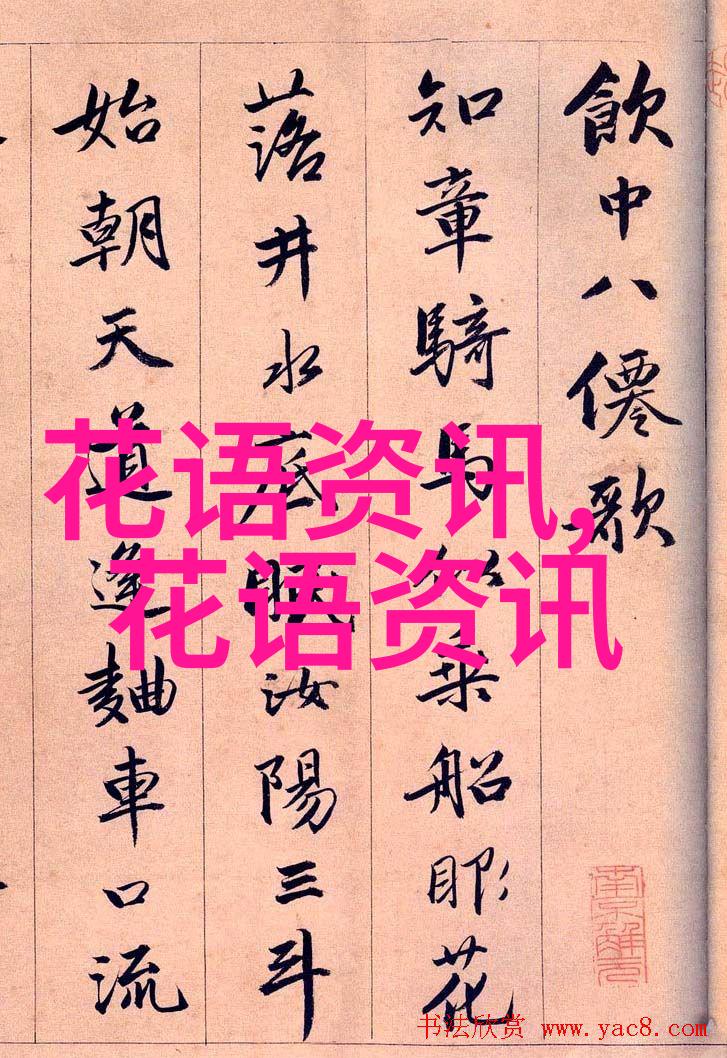 飲中八僊歌
知章騎馬似乗船眼花
落井水底眠汝陽三斗
始朝天道逢麯車口流
花语资讯,
花语资讯
南京解元
书法欣赏 www.yac8.com